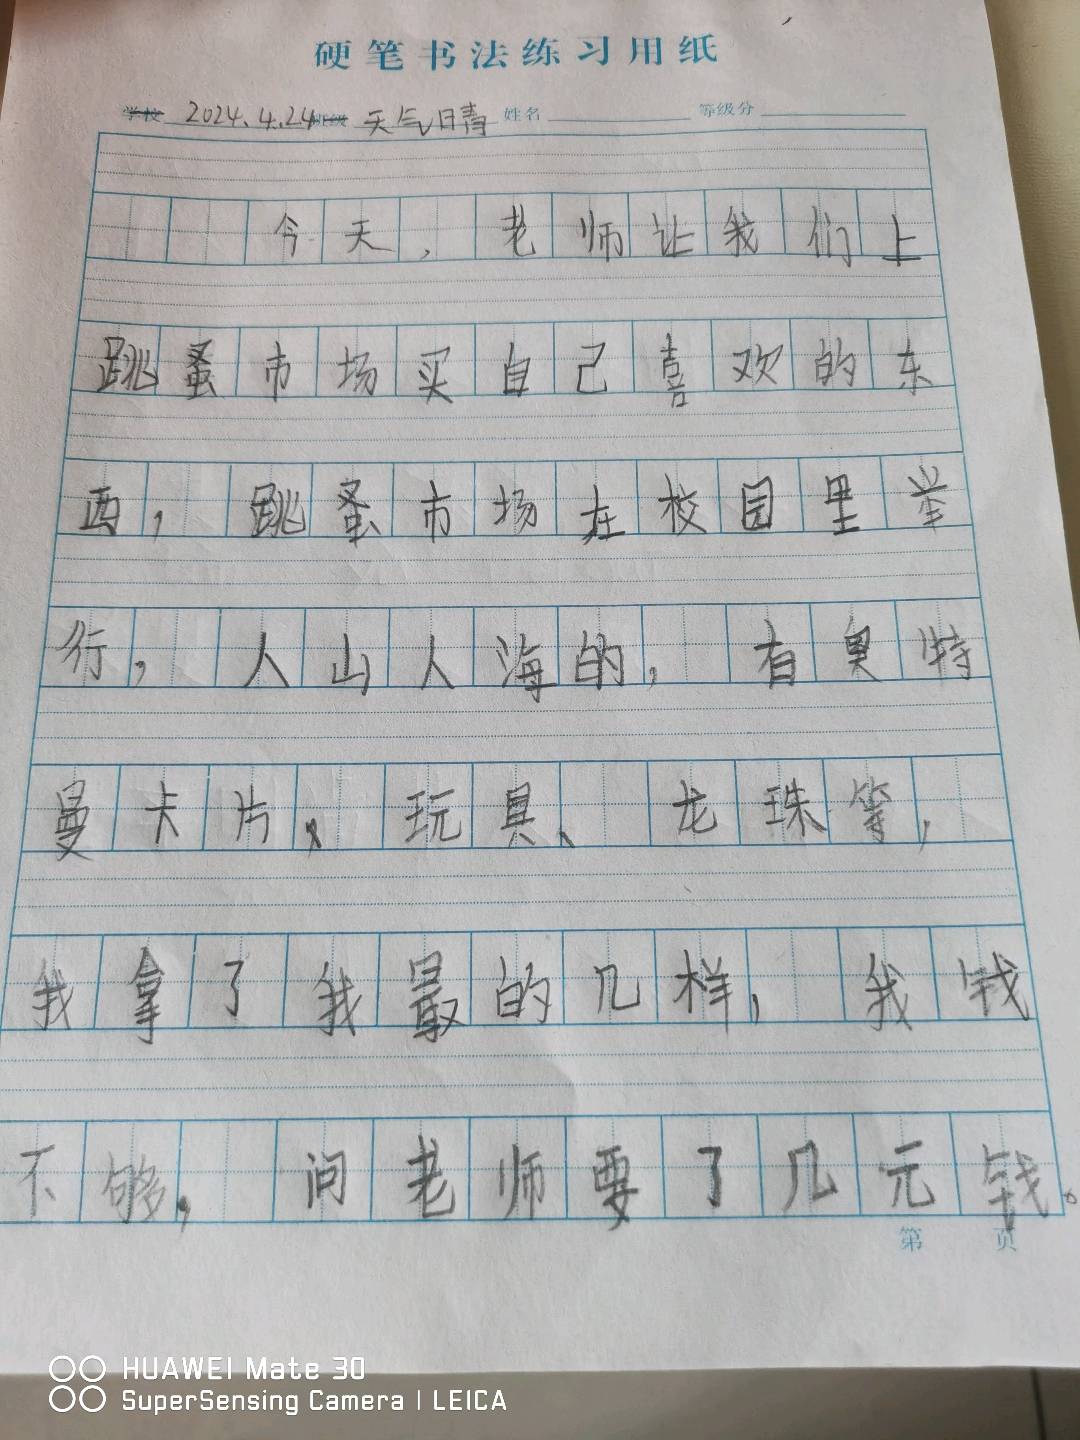 硬笔书法练习用纸
学校 2024.4.24 班级 天气晴 姓名 等级分
今天，老师让我们上
跳蚤市场买自己喜欢的东
西，跳蚤市场在校园里举
行，人山人海的，有奥特
曼卡片、玩具、龙珠等，
我拿了我最的几样，我钱
不够，问老师要了几元钱。
第 页
HUAWEI Mate 30
SuperSensing Camera | LEICA